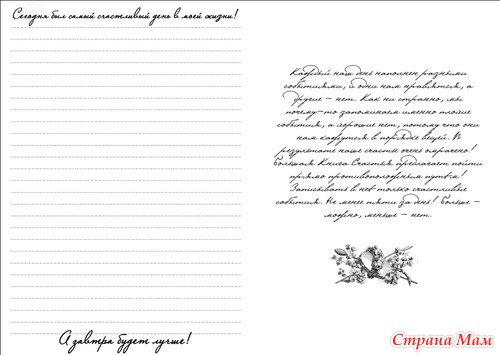 Сегодня был самый счастливый день в моей жизни!
А завтра будет лучше!
Каждый наш день наполнен разными
событиями, и одни нам нравятся, а
другие - нет. Как ни странно, мы
почему-то запоминаем именно плохие
события, а хорошие нет, потому что они
нам кажутся в порядке вещей. В
результате наше счастье очень омрачено!
Большая Книга Счастья предлагает пойти
прямо противоположным путем!
Записывать в неё только счастливые
события. Не менее пяти за день! Больше -
можно, меньше - нет.
Страна Мам